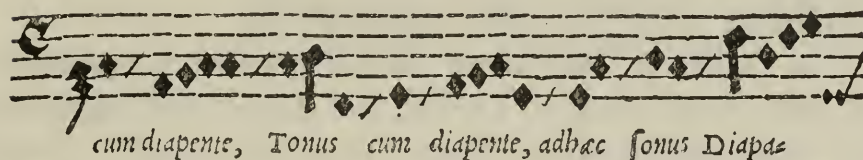 cum diapente, Tonus cum diapente, adhæc ſonus Diapa⸗